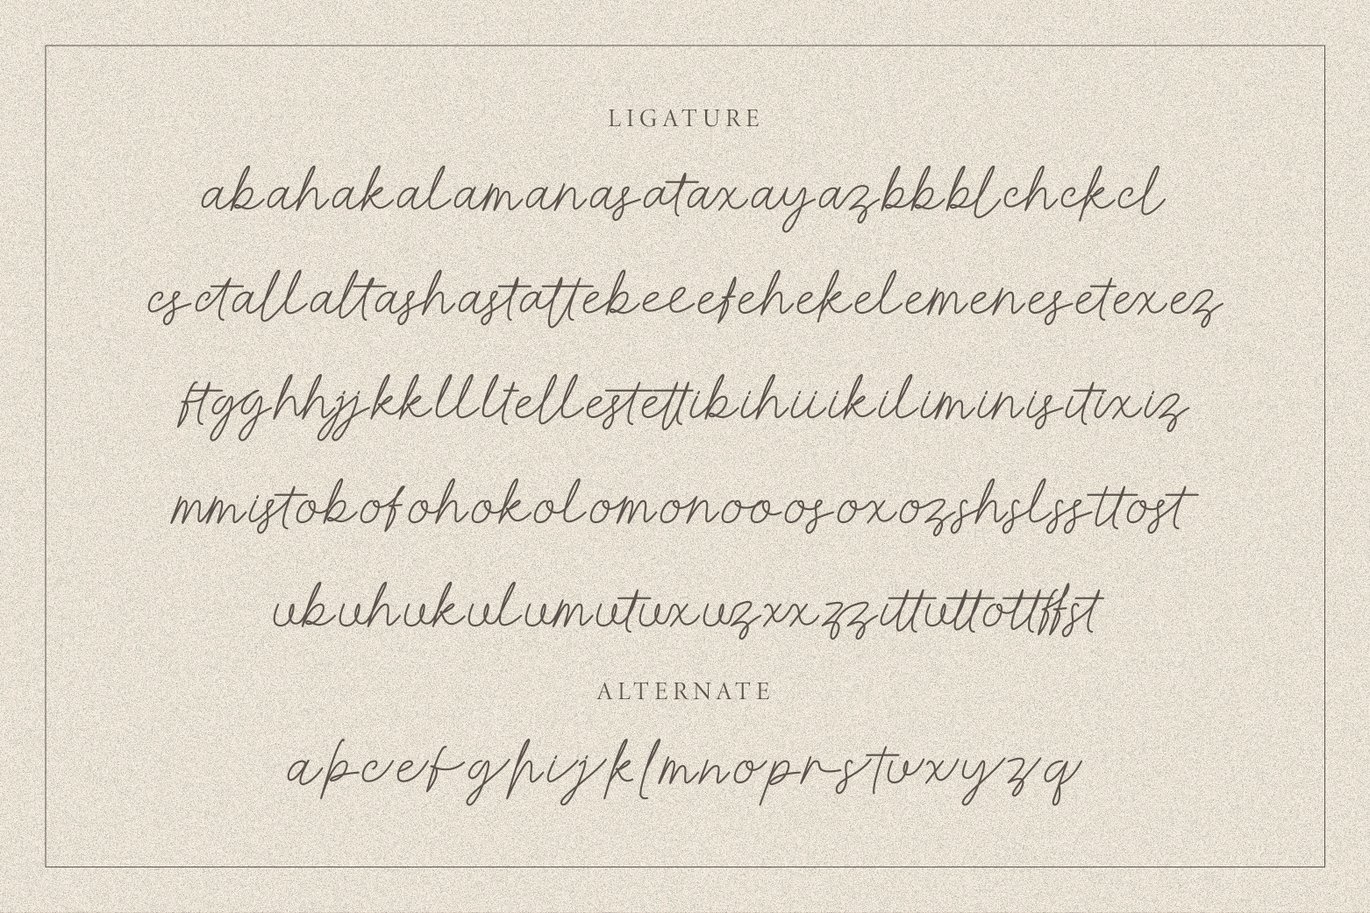 LIGATURE
abahakalamanasataxayazbbblchckcl
csctallaltashastattebeeefehekelemenesetexez
ftgghhjjkklllltellestettibihiiikiliminisitixiz
mmistobofohokolomonooosoxozshslssttost
ubuhukulumutuxuzxxzzittuttottffst
ALTERNATE
abceefghijklmnoprstuvxyzq